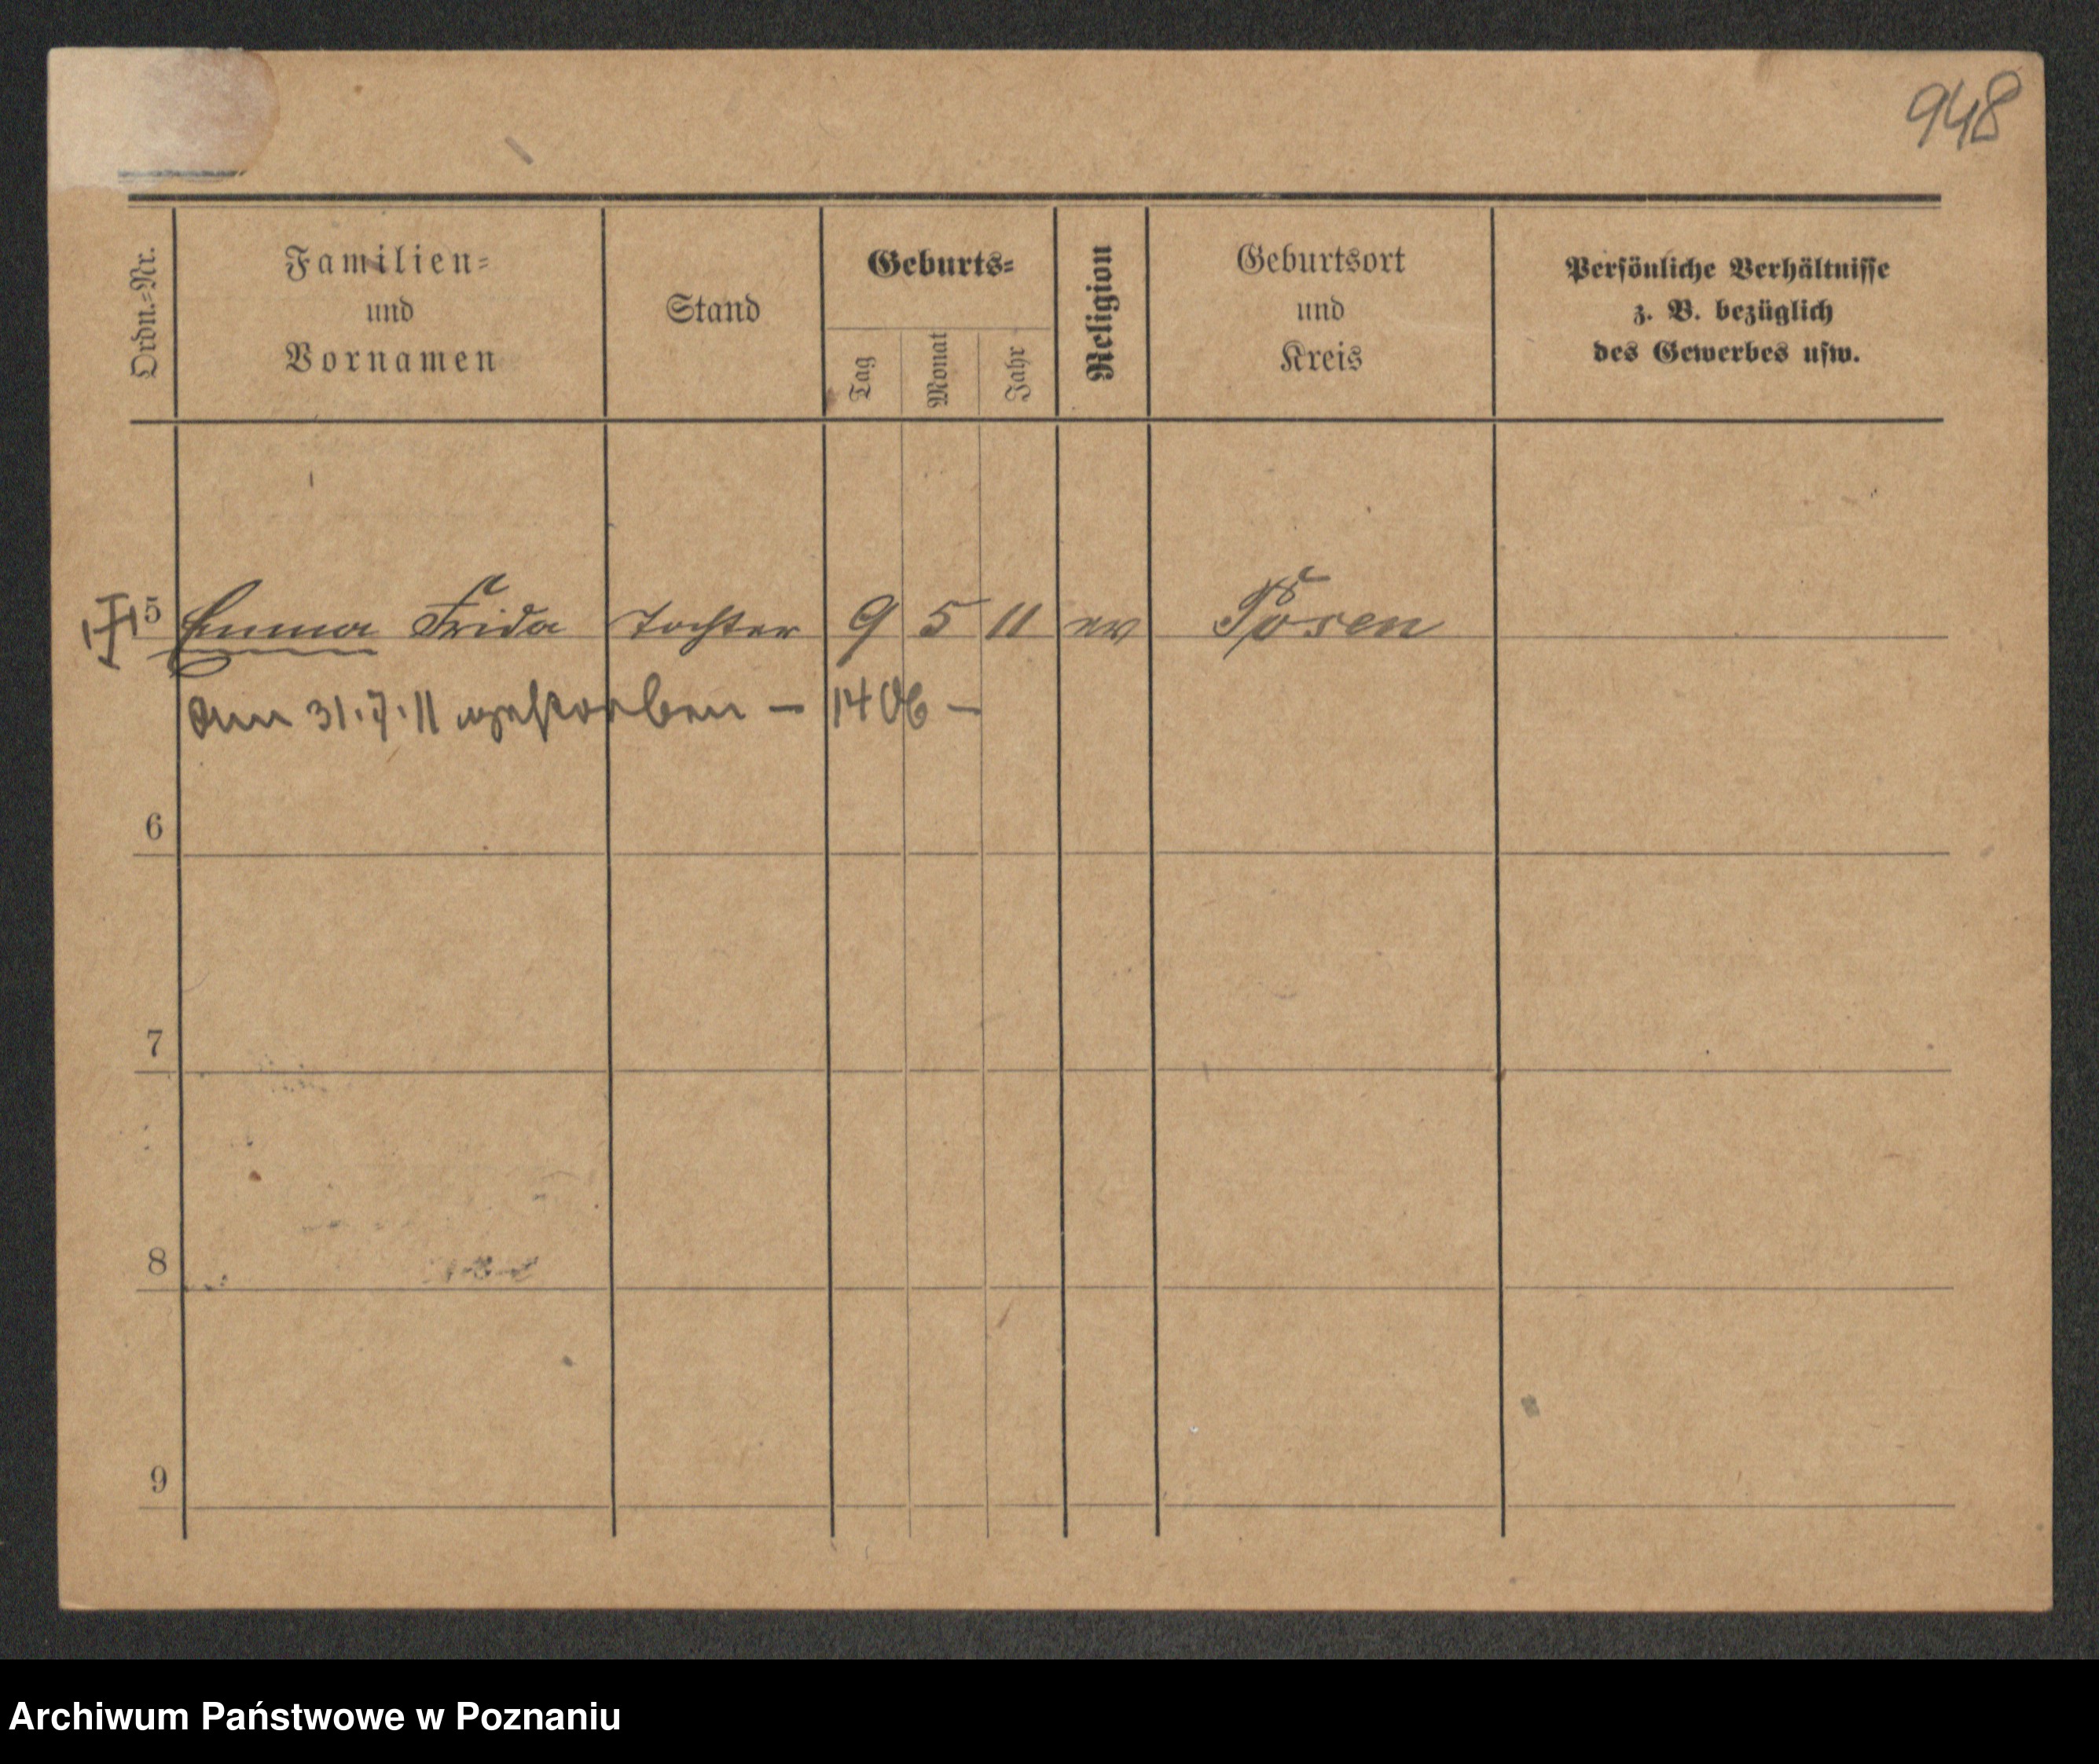 948
Ordn.-Nr.
Familien-
und
Vornamen
Stand
Geburts-
Tag
Monat
Jahr
Religion
Geburtsort
und
Kreis
Persönliche Verhältnisse
z. B. bezüglich
des Gewerbes usw.
5 Emma Frida Tochter 9 5 11 ev Posen
am 31.7.11 gestorben – 1406 –
6
7
8
9
Archiwum Państwowe w Poznaniu